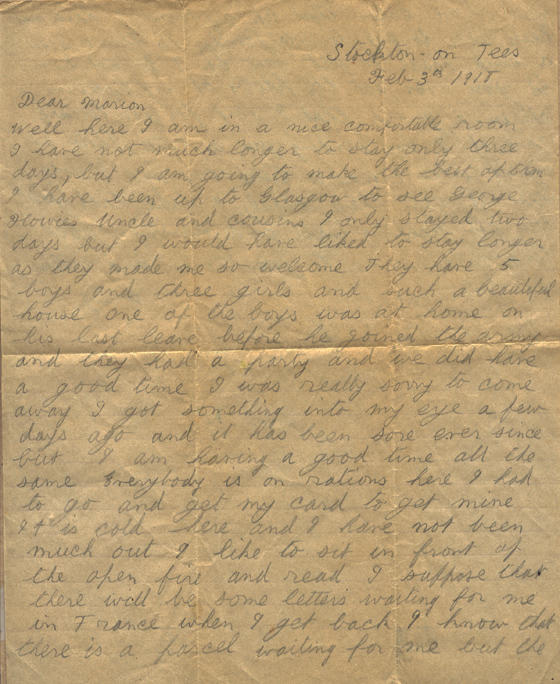 Stockton-on Tees
Feb 3rd 1918
Dear Marion
Well here I am in a nice comfortable room
I have not much longer to stay only three
days, but I am going to make the best of them
I have been up to Glasgow to see George
Howies Uncle and cousins I only stayed two
days but I would have liked to stay longer
as they made me so welcome They have 5
boys and three girls and such a beautiful
house one of the boys was at home on
his last leave before he joined the army
and they had a party and we did have
a good time I was really sorry to come
away I got something into my eye a few
days ago and it has been sore ever since
but I am having a good time all the
same Everybody is on rations here I had
to go and get my card to get mine
It is cold here and I have not been
much out I like to sit in front of
the open fire and read I suppose that
there will be some letters waiting for me
in France when I get back I know that
there is a parcel waiting for me but the